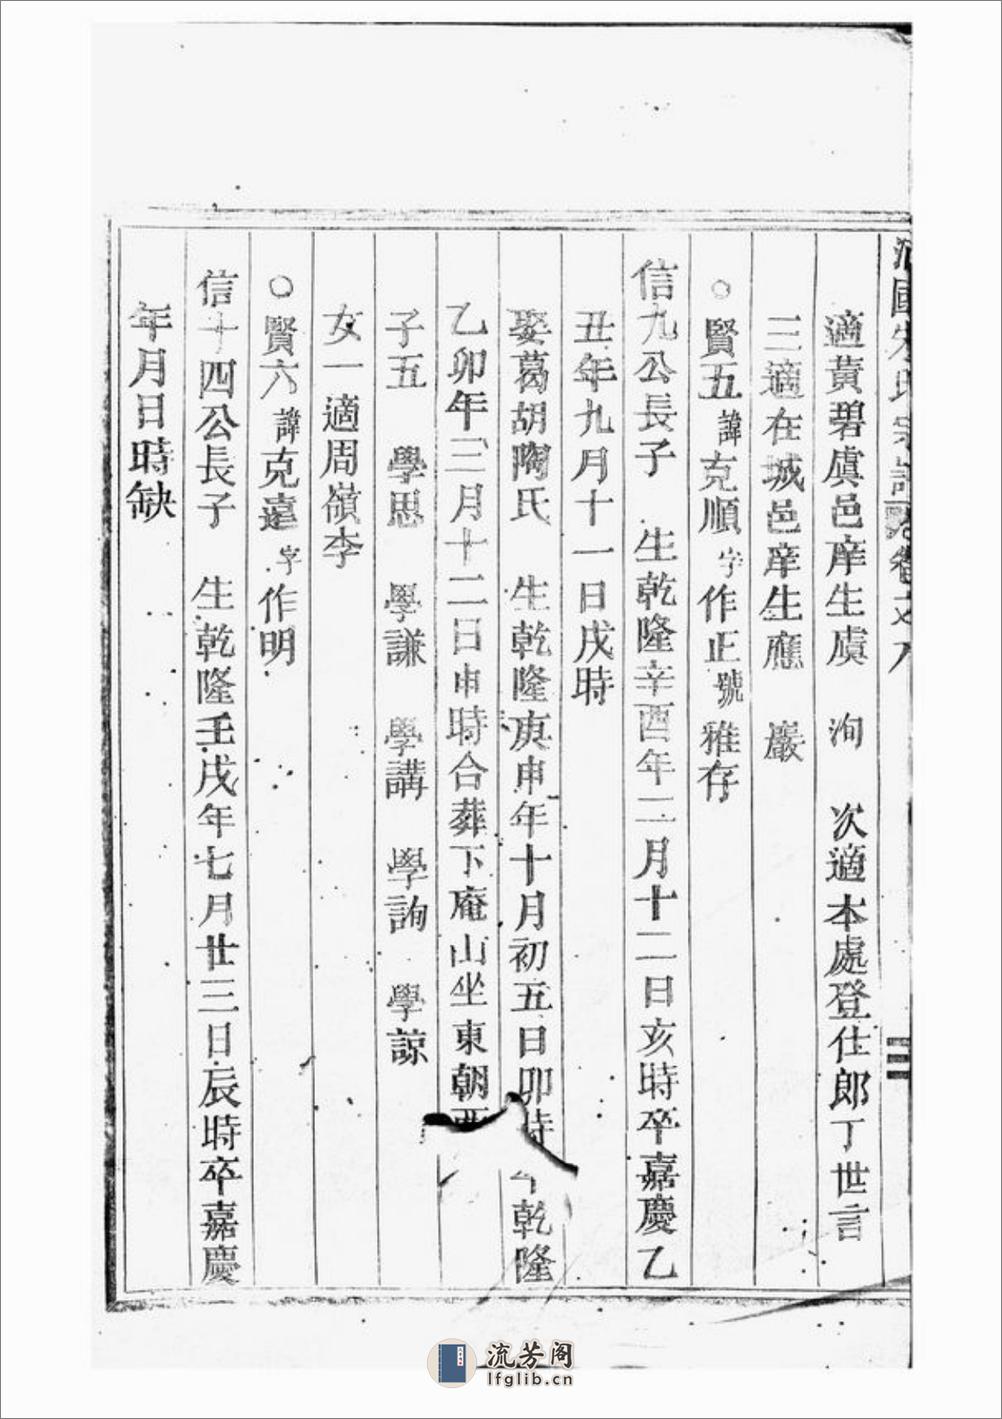 國朱氏宗譜 卷之八
適黃碧虞邑庠生虞 洵 次適本處登仕郎丁世言
三適在城邑庠生應 巖
○賢五諱克順字作正號雅存
信九公長子 生乾隆辛酉年二月十二日亥時卒嘉慶乙
丑年九月十一日戌時
娶葛胡陶氏 生乾隆庚申年十月初五日卯時 乾隆
乙卯年三月十二日申時合葬下庵山坐東朝西
子五 學思 學謙 學講 學詢 學諒
女一適周嶺李
○賢六諱克遠字作明
信十四公長子 生乾隆壬戌年七月廿三日辰時卒嘉慶
年月日時缺
流芳阁
lfglib.cn